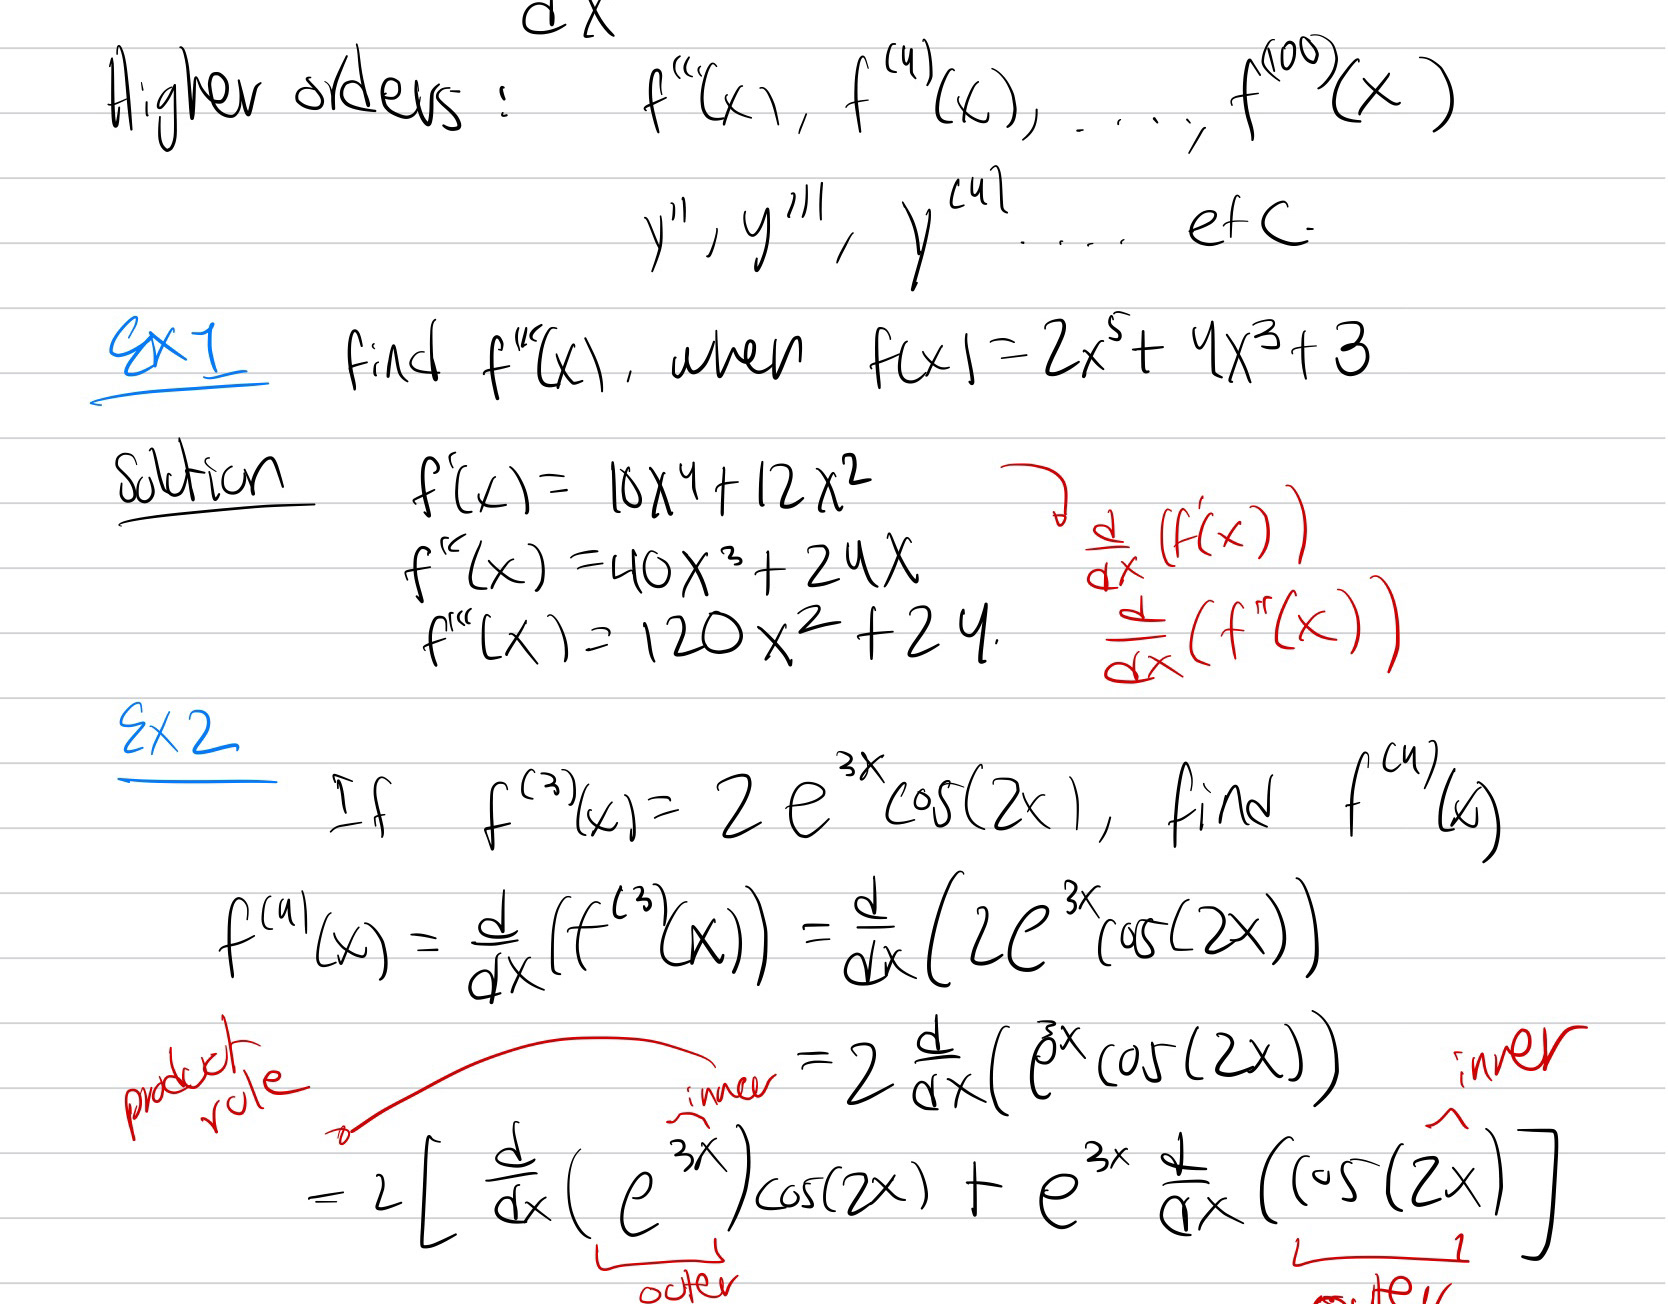 dx
Higher orders: f'''(x), f^(4)(x), ...., f^(100)(x)
y'', y''', y^(4) .... etc.
Ex1 find f'''(x), when f(x) = 2x^5 + 4x^3 + 3
Solution f'(x) = 10x^4 + 12x^2
d/dx (f'(x))
f''(x) = 40x^3 + 24x
f'''(x) = 120x^2 + 24.
d/dx (f''(x))
Ex2
If f^(3)(x) = 2e^3x cos(2x), find f^(4)(x)
f^(4)(x) = d/dx (f^(3)(x)) = d/dx (2e^3x cos(2x))
product rule
= 2 d/dx (e^3x cos(2x))
inner
inner
= 2 [ d/dx (e^3x) cos(2x) + e^3x d/dx (cos(2x)) ]
outer
outer